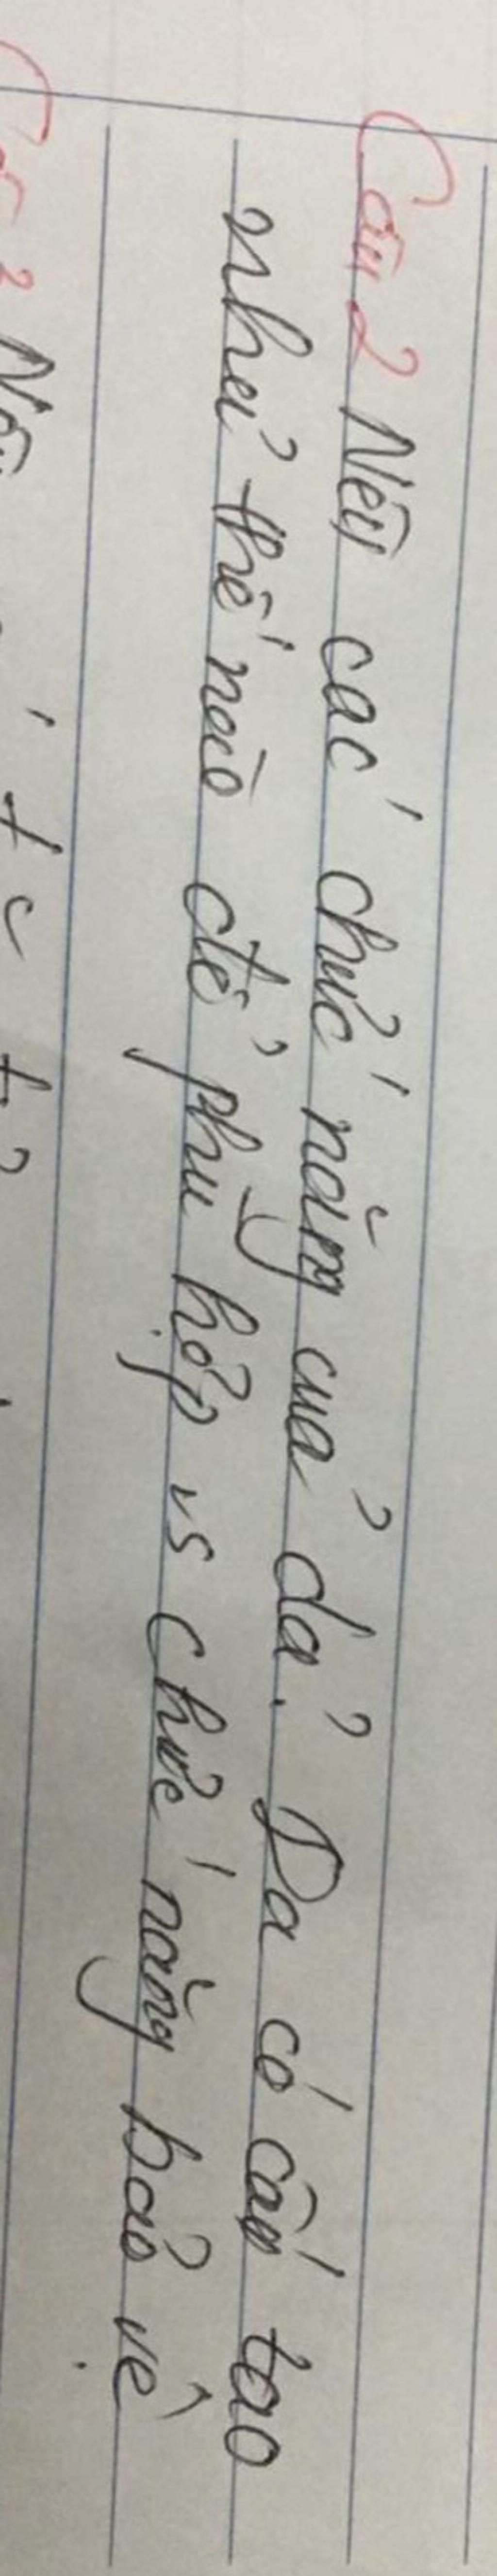 Câu 2 Nêu các chức năng của da? Da có cấu tạo
như thế nào để phù hợp vs chức năng bảo vệ